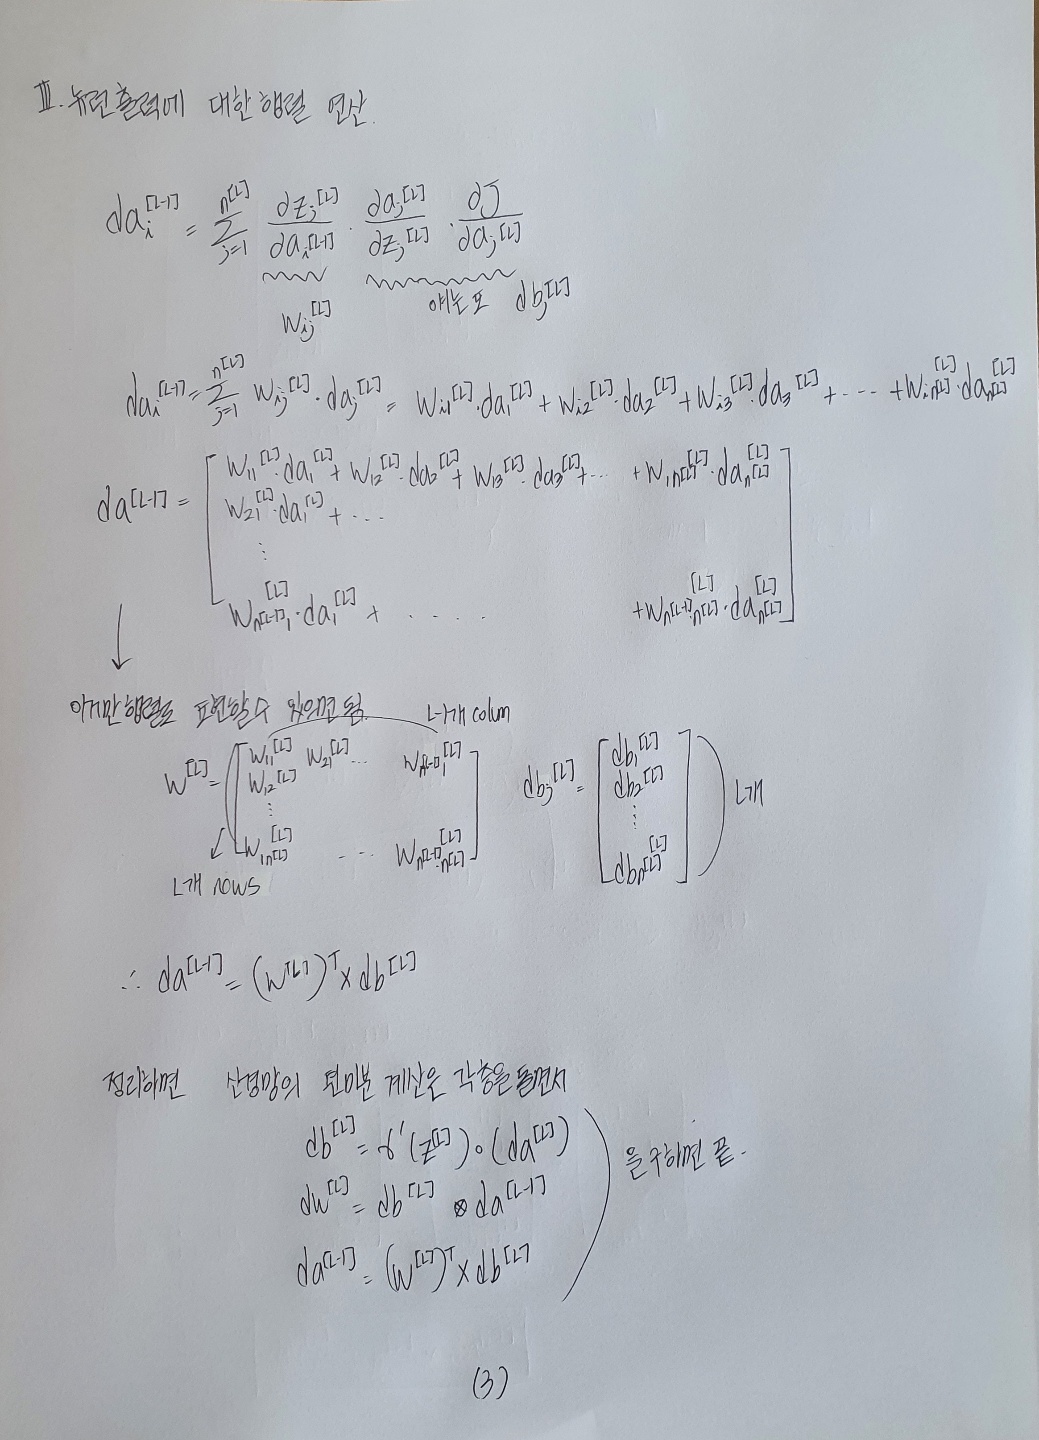 Ⅲ. 뉴런출력에 대한 행렬 연산.
da_i^[L-1] = Σ_{j=1}^{n^[L]} ∂z_j^[L]/∂a_i^[L-1] · ∂a_j^[L]/∂z_j^[L] · ∂J/∂a_j^[L]
w_ij^[L] 얘는 또 db_j^[L]
da_i^[L-1] = Σ_{j=1}^{n^[L]} w_ij^[L] · da_j^[L] = w_i1^[L]·da_1^[L] + w_i2^[L]·da_2^[L] + w_i3^[L]·da_3^[L] + ···· + w_in^[L]^[L]·da_n^[L]^[L]
da^[L-1] = [ w_11^[L]·da_1^[L] + w_12^[L]·da_2^[L] + w_13^[L]·da_3^[L] + ··· + w_1n^[L]^[L]·da_n^[L]^[L]
w_21^[L]·da_1^[L] + ···
⋮
w_n^[L-1]1^[L]·da_1^[L] + ····· + w_n^[L-1]n^[L]^[L]·da_n^[L]^[L] ]
↓
이거만 행렬로 표현할수 있으면 됨. L-1개 colum
w^[L] = [ w_11^[L] w_21^[L] ··· w_n^[L-1]1^[L]
w_12^[L]
⋮
w_1n^[L]^[L] ··· w_n^[L-1]n^[L]^[L] ]
L개 rows
db_j^[L] = [ db_1^[L]
db_2^[L]
⋮
db_n^[L]^[L] ] L개
∴ da^[L-1] = (w^[L])^T × db^[L]
정리하면 신경망의 편미분 계산은 각층을 돌면서
db^[L] = σ'(z^[L]) ∘ (da^[L])
dw^[L] = db^[L] ⊗ da^[L-1]
da^[L-1] = (w^[L])^T × db^[L]
을 구하면 끝.
(3)